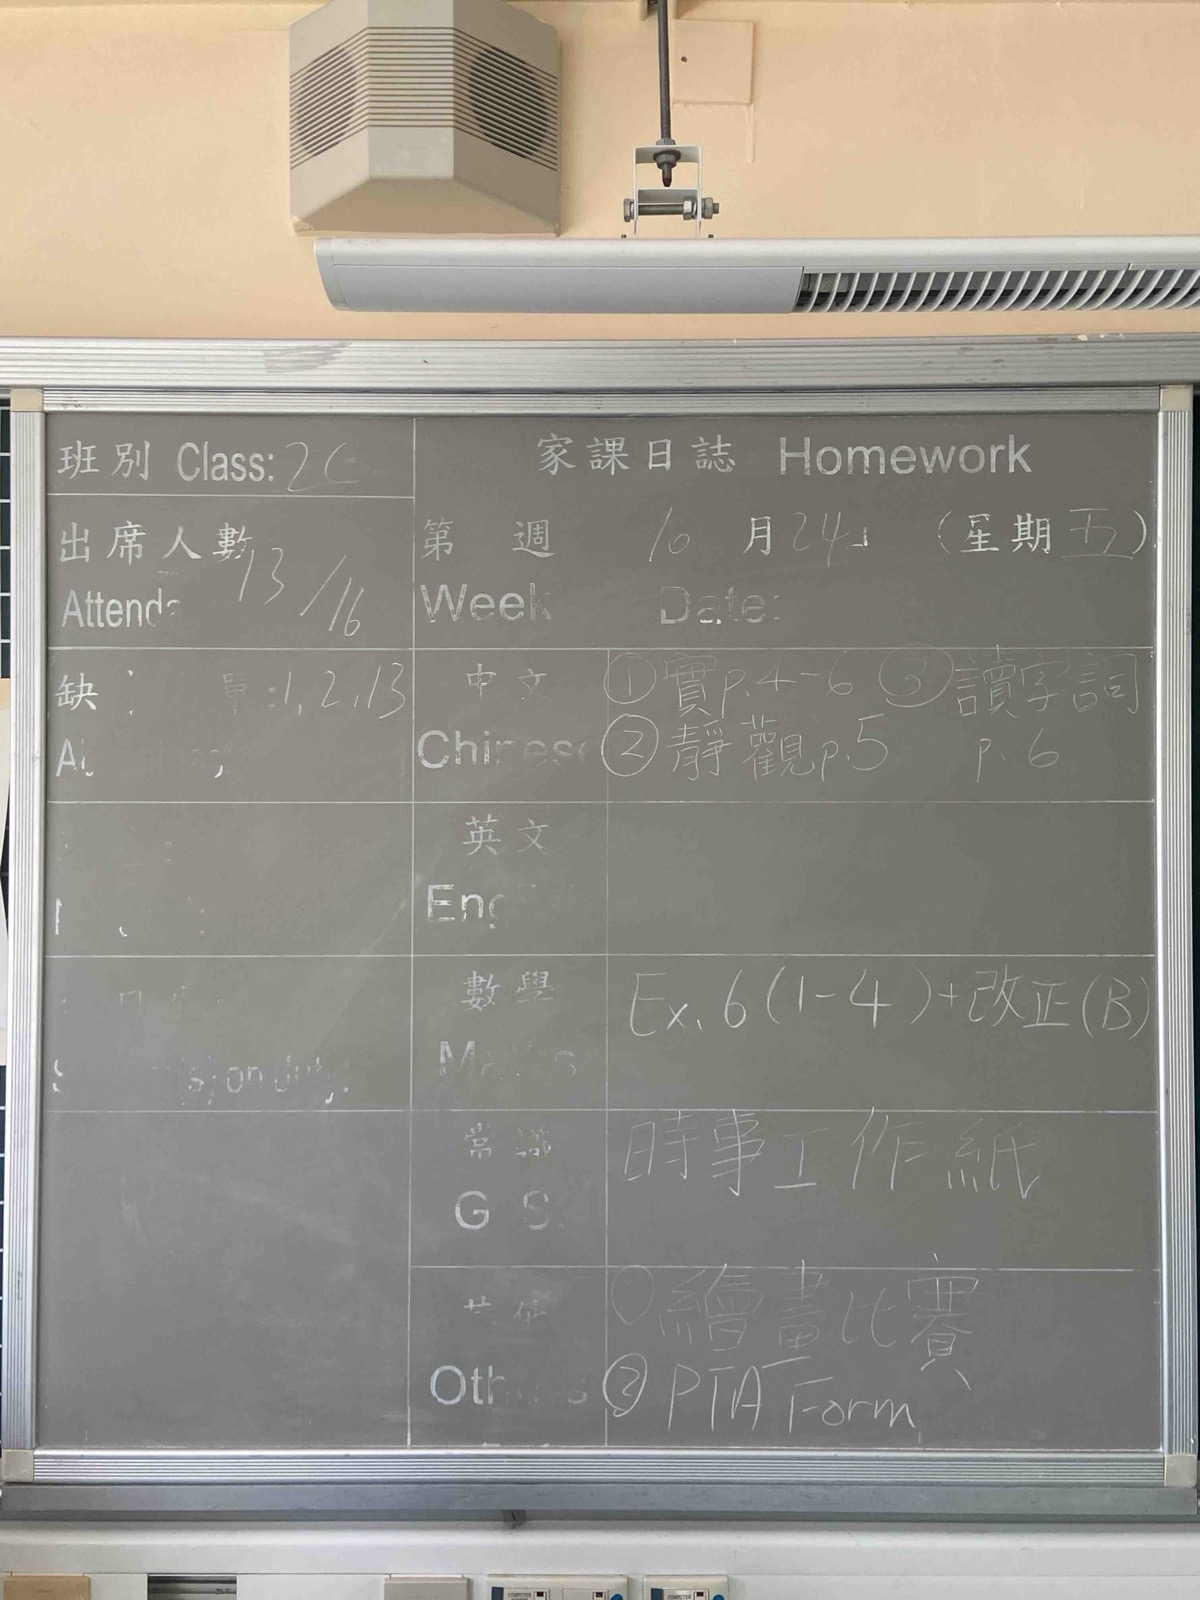 班別 Class: 2C
家課日誌 Homework
出席人數
13/16
第 週 10 月 24日 (星期五)
Week Date:
缺 :1,2,13
中文 ①實p.4-6 ③讀字詞
Chinese ②靜觀p.5 p.6
英文
Eng
數學 Ex. 6(1-4)+改正(B)
on duty.
常識 時事工作紙
G S.
其他 ①繪畫比賽
Others ②PTA Form